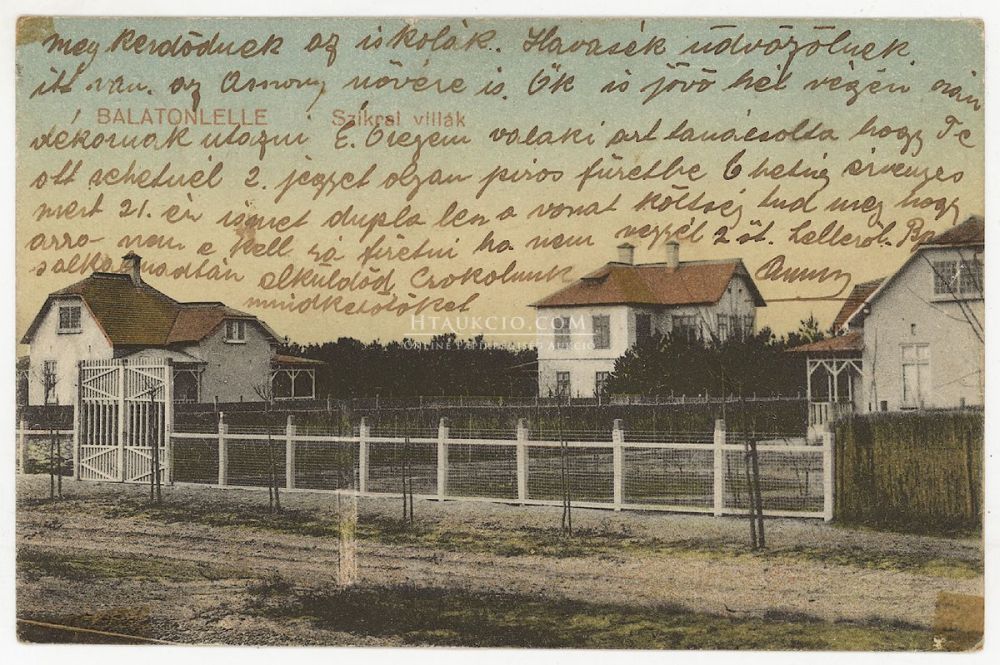 megkezdődnek az iskolák. Havasék üdvözölnek.
itt van az Asszony nővére is. Ők is jövő hét végén
BALATONLELLE Szikrai villák
utazni E. Öregem valaki azt tanácsolta hogy Te
ott vehetnél 2. jegyet olyan piros füzetbe 6 hétig érvényes
mert 21. én ismet dupla len a vonat költség tud meg hogy
arra nem e kell rá fizetni ha nem veszel 2 öt. Lelleről.
elküldöd Csokolunk
mindkettőtöket
HTAUKCIO.COM
ONLINE PAPÍRRÉGISÉG AUKCIÓ